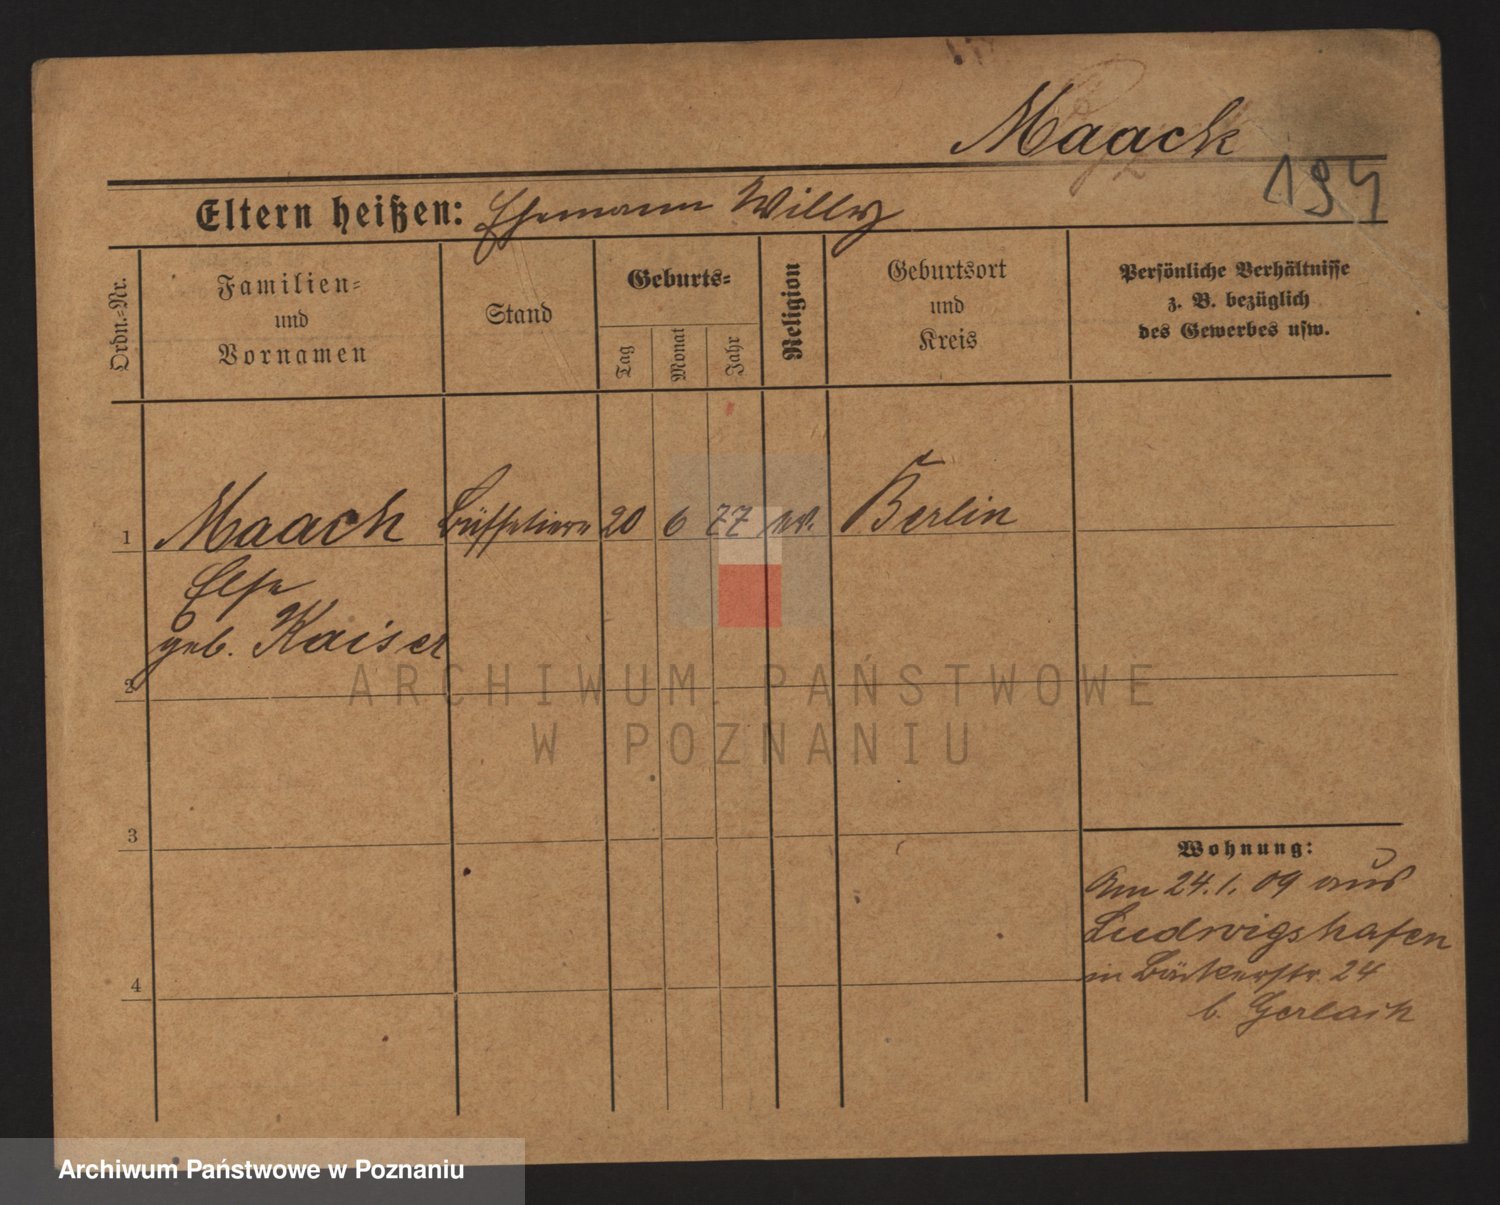 Maack
194
Eltern heißen: Ehemann Willy
Ordn.-Nr.
Familien-
und
Vornamen
Stand
Geburts-
Tag
Monat
Jahr
Religion
Geburtsort
und
Kreis
Persönliche Verhältnisse
z. B. bezüglich
des Gewerbes usw.
1 Maack Büffetiere 20 6 77 ev. Berlin
Else
geb. Kaiser
2
3
4
Wohnung:
Am 24.1.09 aus
Ludwigshafen
in Bäckerstr. 24
b. Gerlach
ARCHIWUM PAŃSTWOWE
W POZNANIU
Archiwum Państwowe w Poznaniu